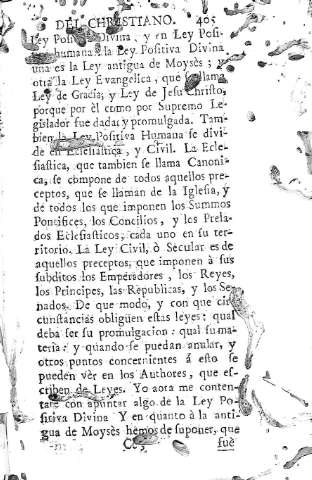 DEL CHRISTIANO. 405
Ley Positiva Divina, y en Ley Posi-
tiva humana. La Ley Positiva Divina
una es la Ley antigua de Moysès; y
otra la Ley Evangelica, que se llama
Ley de Gracia, y Ley de Jesu Christo,
porque por èl como por Supremo Le-
gislador fue dada, y promulgada. Tam-
bien la Ley Positiva Humana se divi-
de en Eclesiastica, y Civil. La Ecle-
siastica, que tambien se llama Canoni-
ca, se compone de todos aquellos pre-
ceptos, que se llaman de la Iglesia, y
de todos los que imponen los Summos
Pontifices, los Concilios, y los Prela-
dos Eclesiasticos, cada uno en su ter-
ritorio. La Ley Civil, ò Secular es de
aquellos preceptos, que imponen à sus
subditos los Emperadores, los Reyes,
los Principes, las Republicas, y los Se-
nados. De que modo, y con que cir-
cunstancias obliguen estas leyes: qual
deba ser su promulgacion: qual su ma-
teria: y quando se puedan anular, y
otros puntos concernientes á esto se
pueden vèr en los Authores, que es-
criben de Leyes. Yo aora me conten-
tarè con apuntar algo de la Ley Po-
sitiva Divina Y en quanto à la anti-
gua de Moysès hemos de suponer, que
fuè